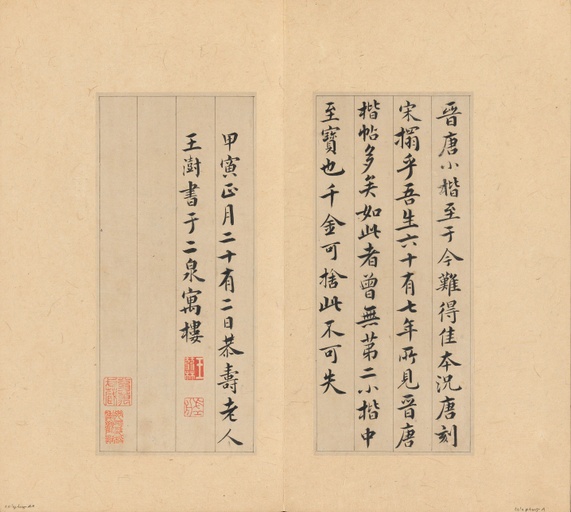 晉唐小楷至于今難得佳本況唐刻
宋搨乎吾生六十有七年所見晉唐
楷帖多矣如此者曾無苐二小楷中
至寶也千金可捨此不可失
甲寅正月二十有二日恭壽老人
王澍書于二泉寓樓